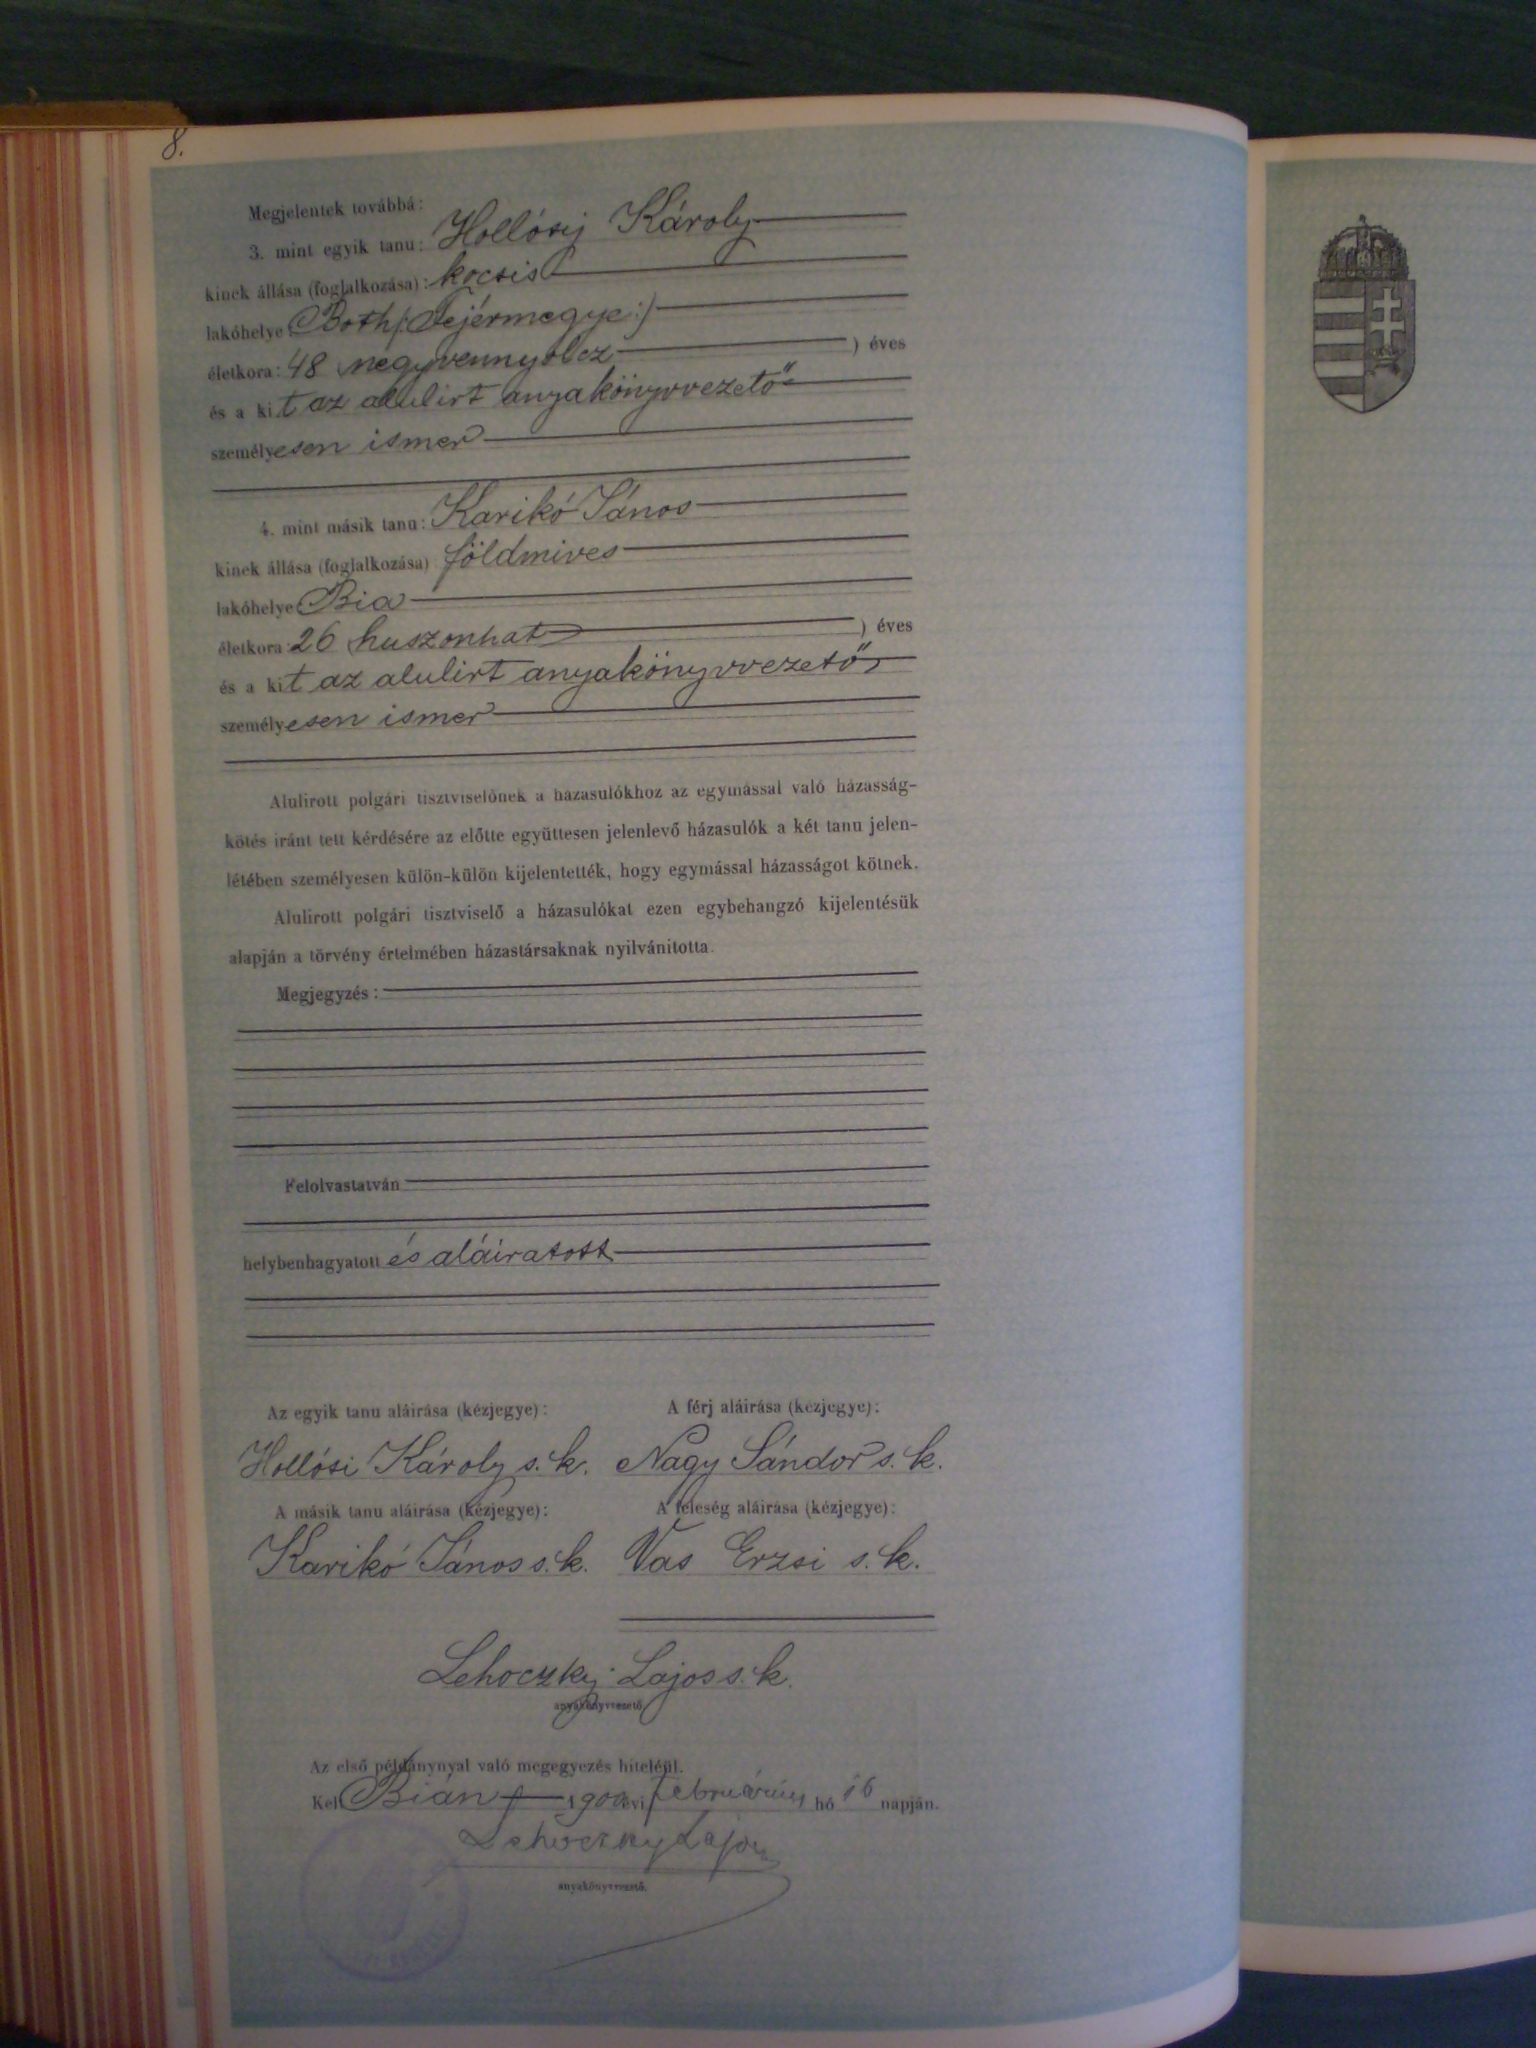 8.
Megjelentek továbbá:
3. mint egyik tanu: Hollósy Károly
kinek állása (foglalkozása): kocsis
lakóhelye Both /: Fejérmegye :/
életkora: 48 negyvennyolcz ) éves
és a kit az alulirt anyakönyvvezető
személyesen ismer
4. mint másik tanu: Karikó János
kinek állása (foglalkozása) földmives
lakóhelye Bia
életkora: 26 huszonhat ) éves
és a kit az alulirt anyakönyvvezető
személyesen ismer
Alulirott polgári tisztviselőnek a házasulókhoz az egymással való házasság-
kötés iránt tett kérdésére az előtte együttesen jelenlevő házasulók a két tanu jelen-
létében személyesen külön-külön kijelentették, hogy egymással házasságot kötnek.
Alulirott polgári tisztviselő a házasulókat ezen egybehangzó kijelentésük
alapján a törvény értelmében házastársaknak nyilvánitotta.
Megjegyzés:
Felolvastatván
helybenhagyatott és aláiratott
Az egyik tanu aláirása (kézjegye): A férj aláirása (kézjegye):
Hollósi Károly s. k. Nagy Sándor s. k.
A másik tanu aláirása (kézjegye): A feleség aláirása (kézjegye):
Karikó János s. k. Vas Erzsi s. k.
Lehoczky Lajos s. k.
anyakönyvvezető
Az első példánynyal való megegyezés hiteléül.
Kelt Bián 1900 évi február hó 16 napján.
Lehoczky Lajos
anyakönyvvezető.